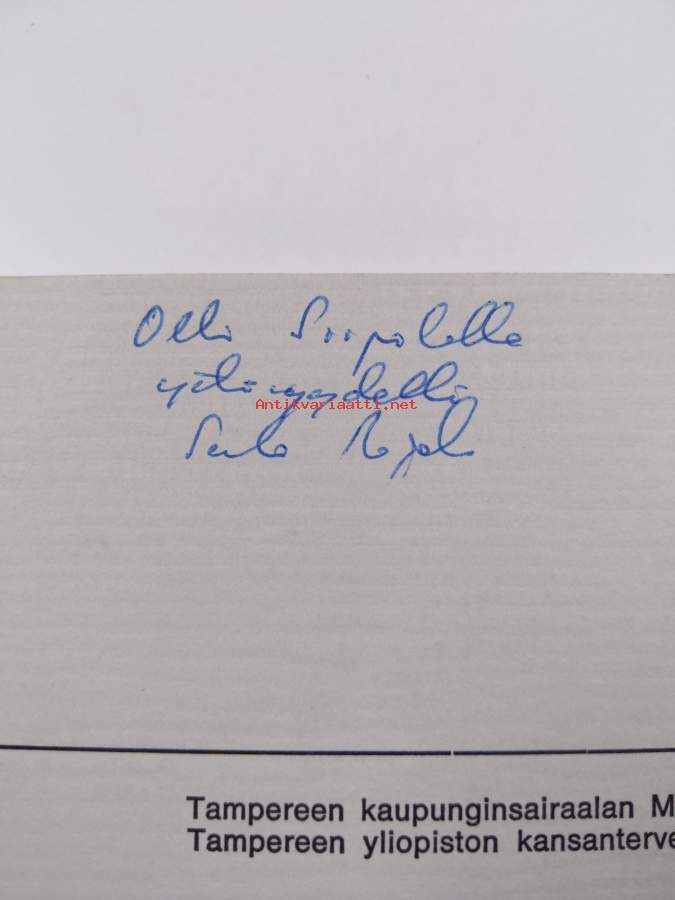 Olli Siipolalle
ystävyydellä
Antikvariaatti.net
Tampereen kaupunginsairaalan M
Tampereen yliopiston kansanterve